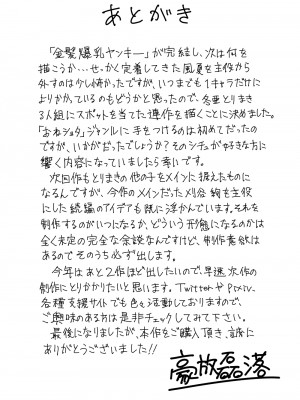 あとがき
「金髪爆乳ヤンキー」が完結し、次は何を
描こうか…せっかく定着してきた風夏を主役から
外すのは少し怖かったですが、いつまでも1キャラだけに
よりかかっているのもどうかと思ったので、各更とりまき
3人組にスポットを当てた連作を描くことに決めました。
「おねショタ」ジャンルに手をつけるのは初めてだったの
ですが、いかがだったでしょうか?そのシチュが好きな方に
響く内容になっていましたら幸いです。
次回作もとりまきの他の子をメインに据えたものに
なるんですが、今作のメインだった刈谷 絢を主役
にした続編のアイデアも既に浮かんでいます。それを
制作するのがいつになるか、どういう形態になるのかは
全く未定の完全な余談なんですけど、制作意欲は
あるのでそのうち必ず出します。
今年はあと2作ほど出したいので、早速次作の
制作にとりかかりたいと思います。TwitterやPixiv、
各種支援サイトでも色々活動しておりますので、
ご興味のある方は是非チェックしてみて下さい。
最後になりましたが、本作をご購入頂き、誠に
ありがとうございました!!
豪放磊落